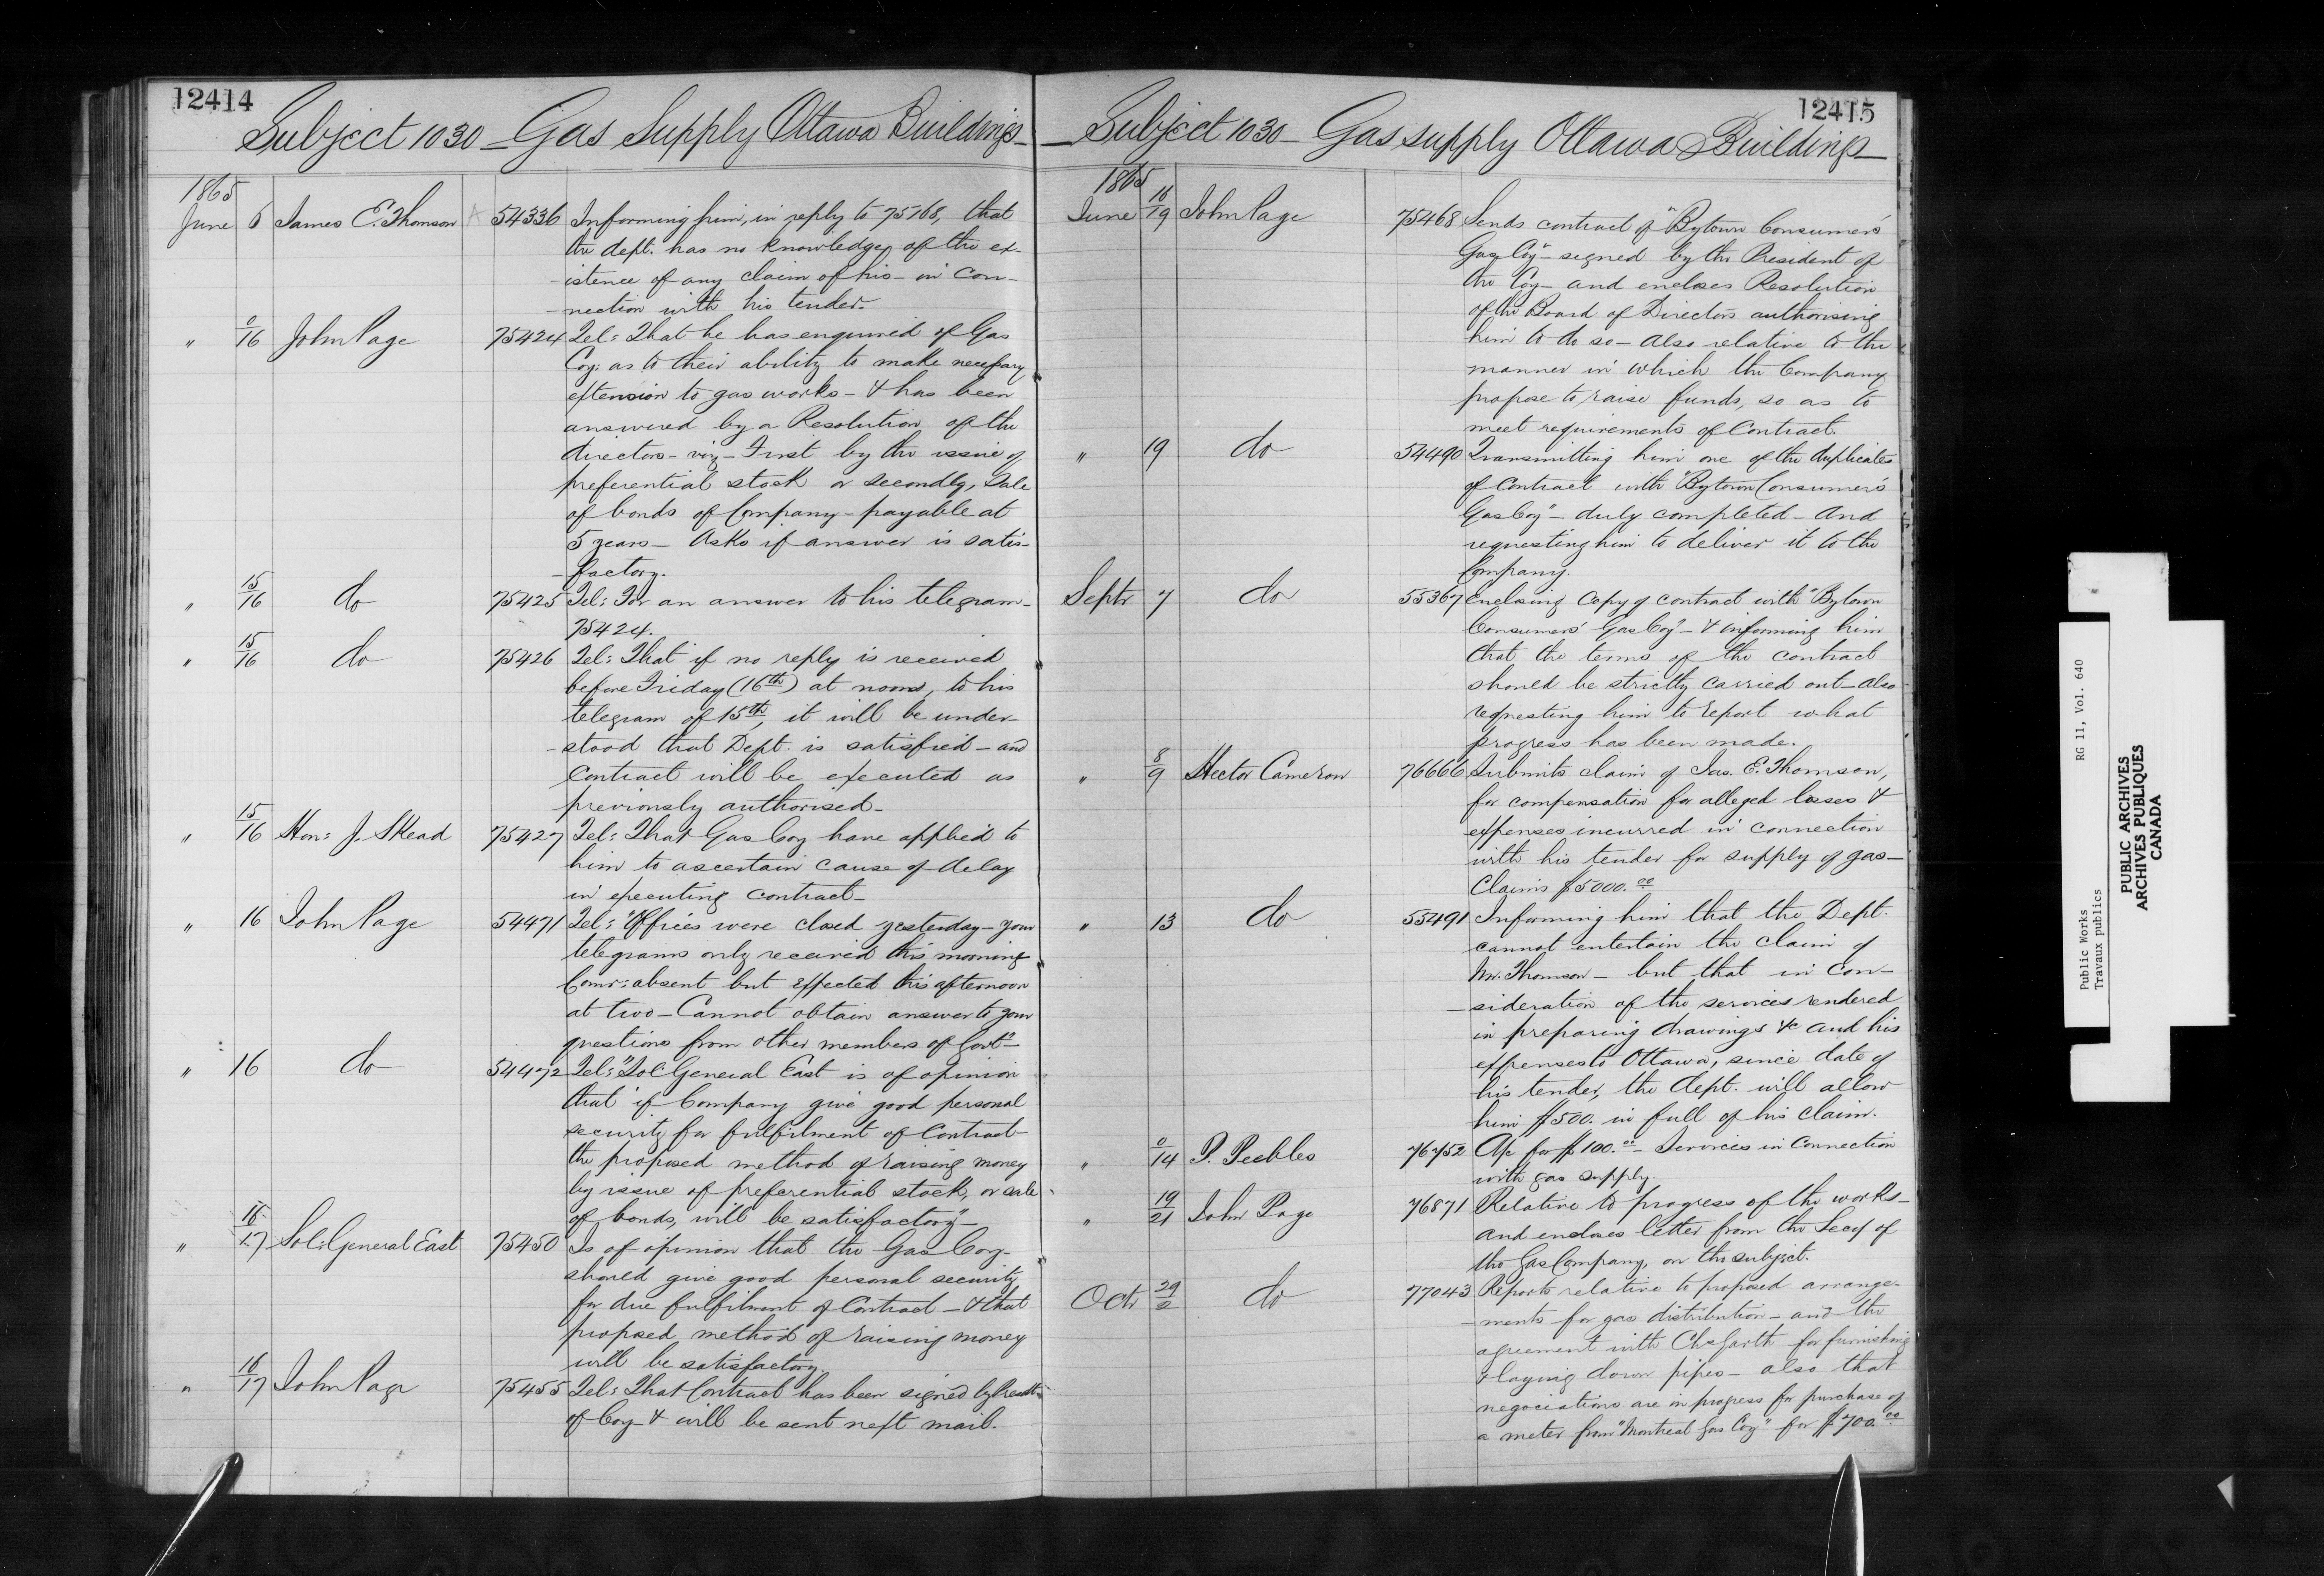 12414
Subject 1030 - Gas Supply Ottawa Buildings -
1865
June 6 James E. Thomson 54336 Informing him, in reply to 75168, that
the dept. has no knowledge of the ex-
-istence of any claim of his - in con-
-nection with his tender.
" 0/16 John Page 75424 Tel: That he has enquired of Gas
Coy: as to their ability to make necessary
extension to gas works - & has been
answered by a Resolution of the
directors - viz - First by the issue of
preferential stock or secondly, Sale
of bonds of Company - payable at
5 years - Asks if answer is satis-
-factory.
" 15/16 do 75425 Tel: For an answer to his telegram -
75424.
" 15/16 do 75426 Tel: That if no reply is received
before Friday (16th) at noon, to his
telegram of 15th, it will be under-
-stood that Dept. is satisfied - and
contract will be executed as
previously authorised -
" 15/16 Hon: J. Skead 75427 Tel: That Gas Coy have applied to
him to ascertain cause of delay
in executing contract -
" 16 John Page 54471 Tel: "Offices were closed yesterday - your
telegrams only received this morning
Comr: absent but expected this afternoon
at two - Cannot obtain answer to your
questions from other members of Govt" -
" 16 do 54472 Tel: "Sol: General East is of opinion
that if Company give good personal
security for fulfilment of Contract -
the proposed method of raising money
by issue of preferential stock, or sale
of bonds, will be satisfactory" -
" 16/17 Sol: General East 75450 Is of opinion that the Gas Coy -
should give good personal security
for due fulfilment of Contract - & that
proposed method of raising money
will be satisfactory.
" 16/17 John Page 75455 Tel: That Contract has been signed by Presdt:
of Coy - & will be sent next mail.
12415
Subject 1030 - Gas supply Ottawa Buildings -
1865
June 16/19 John Page 75468 Sends contract of "Bytown Consumers'
Gas Coy" - signed by the President of
the Coy - and encloses Resolution
of the Board of Directors authorising
him to do so - Also relative to the
manner in which the Company
propose to raise funds, so as to
meet requirements of Contract.
" 19 do 54490 Transmitting him one of the duplicates
of Contract with "Bytown Consumer's
Gas Coy" - duly completed - And
requesting him to deliver it to the
Company.
Septr 7 do 55367 Enclosing Copy of contract with "Bytown
Consumers' Gas Coy" - & informing him
that the terms of the contract
should be strictly carried out - also
requesting him to report what
progress has been made.
" 8/9 Hector Cameron 76666 Submits claim of Jas. E. Thomson,
for compensation for alleged losses &
expenses incurred in connection
with his tender for supply of gas -
Claims $5000.00
" 13 do 55491 Informing him that the Dept.
cannot entertain the claim of
Mr. Thomson - but that in con-
-sideration of the services rendered
in preparing drawings &c and his
expenses to Ottawa, since date of
his tender, the dept. will allow
him $500. in full of his claim.
" 0/14 P. Peebles 76752 A/c for $100.00 - Services in connection
with gas supply.
" 19/21 John Page 76871 Relative to progress of the works -
and encloses letter from the Secy of
the Gas Company, on the subject.
Octr 29/2 do 77043 Reports relative to proposed arrange-
-ments for gas distribution - and the
agreement with Chs Garth for furnishing
& laying down pipes - also that
negociations are in progress for purchase of
a meter from "Montreal Gas Coy" for $700.00
Public Works RG 11, Vol. 640
Travaux publics
PUBLIC ARCHIVES
ARCHIVES PUBLIQUES
CANADA